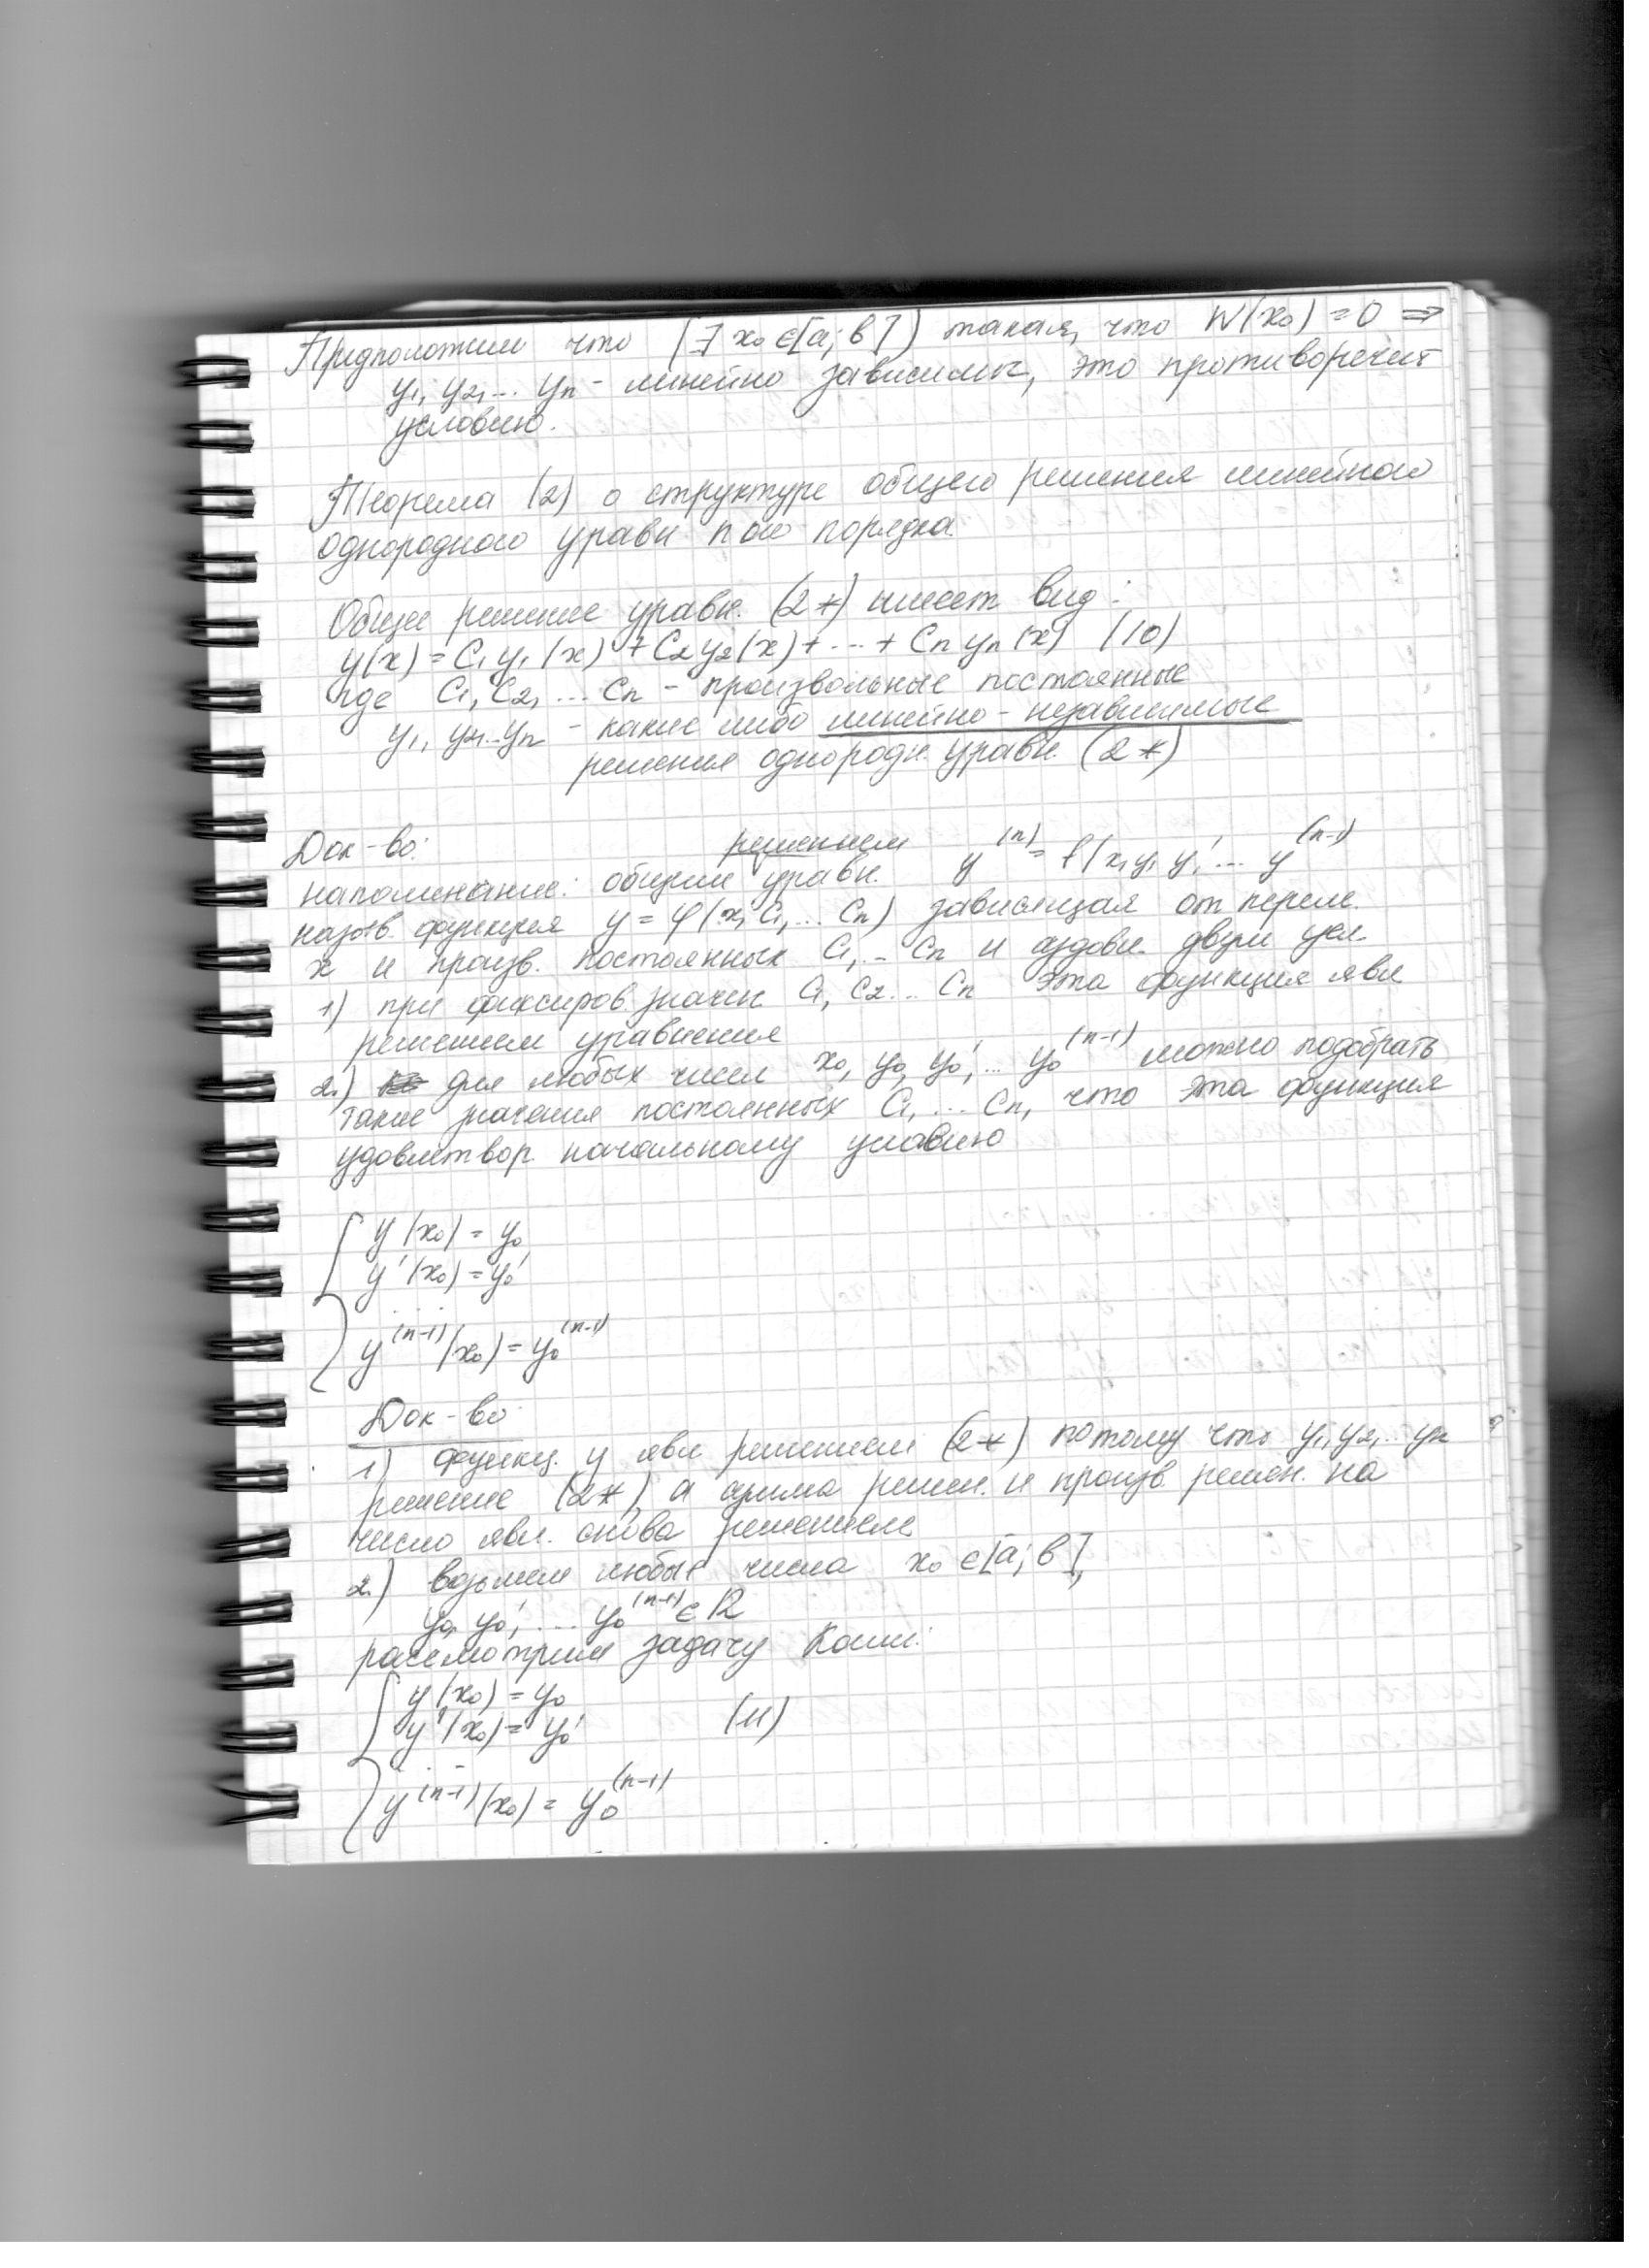 Предположим что (∃ x₀ ∈ [a; b]) такая, что W(x₀) = 0 ⇒
y₁, y₂, ... yₙ - линейно зависимы, это противоречит
условию.
Теорема (2) о структуре общего решения линейного
однородного уравн n ого порядка.
Общее решение уравн. (2*) имеет вид:
y(x) = C₁ y₁(x) + C₂ y₂(x) + ... + Cₙ yₙ(x) (10)
где C₁, C₂, ... Cₙ - произвольные постоянные
y₁, y₂...yₙ - какие либо линейно-независимые
решения однородн. уравн. (2*)
Док-во:
напоминание: общим решением уравн. y⁽ⁿ⁾ = f(x, y, y', ... y⁽ⁿ⁻¹⁾
назыв. функция y = φ(x, C₁, ... Cₙ) зависящая от перем.
x и произв. постоянных C₁, .. Cₙ и удовл. двум усл.
1) при фиксиров. значен C₁, C₂... Cₙ эта функция явл
решением уравнения
2.) для любых чисел x₀, y₀, y₀', ... y₀⁽ⁿ⁻¹⁾ можно подобрать
такие значения постоянных C₁, ... Cₙ, что эта функция
удовлетвор. начальному условию
y(x₀) = y₀
y'(x₀) = y₀'
. . . .
y⁽ⁿ⁻¹⁾(x₀) = y₀⁽ⁿ⁻¹⁾
Док-во:
1) функц. y явл решением (2*) потому что y₁, y₂, .. yₙ
решение (2*), а сумма решен. и произв. решен. на
число явл. снова решением
2.) возьмем любые числа x₀ ∈ [a; b],
y₀, y₀', ... y₀⁽ⁿ⁻¹⁾ ∈ R
рассмотрим задачу Коши:
y(x₀) = y₀
y'(x₀) = y₀' (11)
. . -
y⁽ⁿ⁻¹⁾(x₀) = y₀⁽ⁿ⁻¹⁾